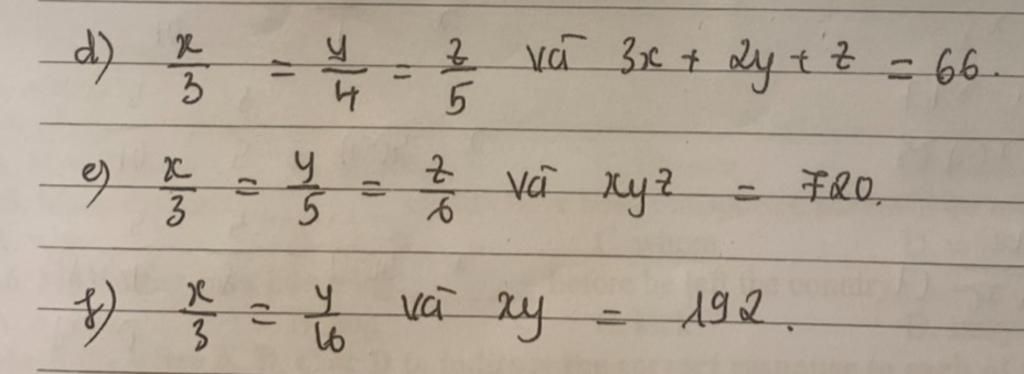 d) x/3 = y/4 = z/5 và 3x + 2y + z = 66.
e) x/3 = y/5 = z/6 và xyz = 720.
f) x/3 = y/16 và xy = 192.